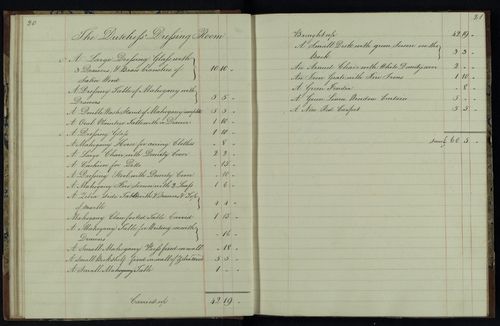 20
The Dutchess' Dressing Room
A Large Dressing Glass with
3 Drawers & Brass Branches of
Satin Wood 10 10 -
A Dressing Table of Mahogany with
Drawers 5 5 -
A Double Wash Stand of Mahogany complete 5 5 -
A Oval Table with a Drawer 1 10 -
A Dressing Glass 1 10 -
A Mahogany Horse for airing Clothes - 8 -
A Large Chair with Dimity Cover 2 2 -
A Cushion for Ditto - 15 -
A Dressing Stool with Dimity Cover - 10 -
A Mahogany Fire Screen with 2 Leafs 1 6 -
A Table with 2 Drawers & Top
of marble 4 4 -
Mahogany Claw footed Table Carved 1 15 -
A Mahogany Table for Writing on with
Drawers - 16 -
A Small Mahogany Press fixed in wall - 18 -
A Small Book Shelf fixed in wall of 5 5 -
A Small Mahogany Table 1 - -
Carried up 42 19 -
21
Brought up 42 19 -
A Small Desk with green Screen on the
Back 3 3 -
An Armed Chair with White 2 - -
An Iron Grate with Fire Irons 1 10 -
A Green Fender - 8 -
A Green Lawn Window Curtain 5 - -
A New Red Carpet 5 5 -
Sum £ 60 5 -